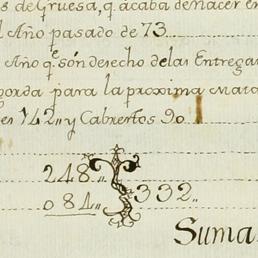 s de Gruesa, q. acaba de nacer en
l Año pasado de 73
Año q.e són derecho delas Entrega
gorda para la proxima Mata
es 142,, y Cabrertos 90
248,,
084,, 332,,
Suma